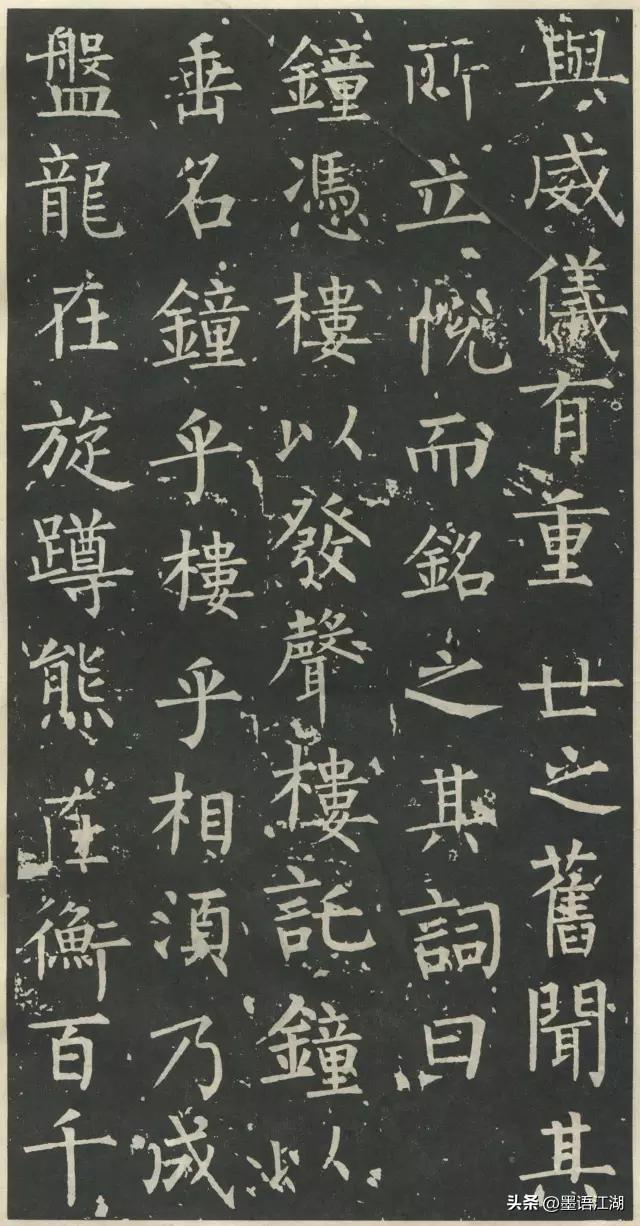 與威儀有重世之舊聞其
所立悅而銘之其詞曰
鐘憑樓以發聲樓託鐘以
垂名鐘乎樓乎相須乃成
盤龍在旋蹲熊在衡百千
头条@墨语江湖